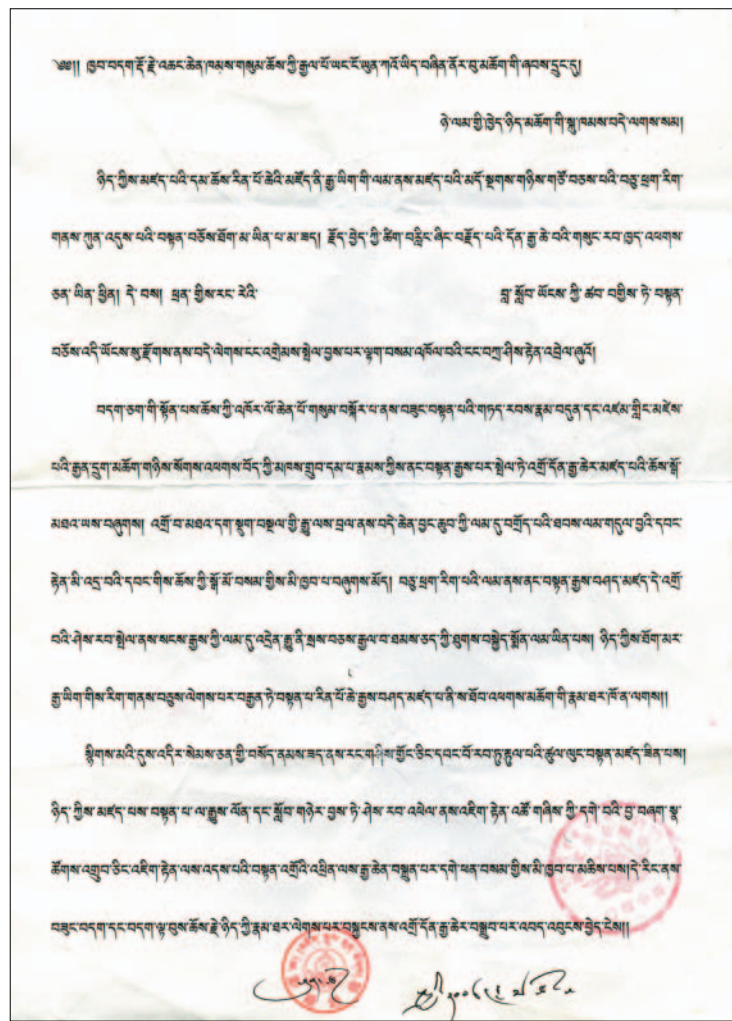 ༄༅།། ཁྱབ་བདག་རྡོ་རྗེ་འཆང་ཆེན་ཁམས་གསུམ་ཆོས་ཀྱི་རྒྱལ་པོ་ཡང་ངོ་ཡུན་ཀའོ་ཡིད་བཞིན་ནོར་བུ་མཆོག་གི་ཞབས་དྲུང་དུ།
ཉེ་ལམ་གྱི་ཁྱེད་ཉིད་མཆོག་གི་སྐུ་ཁམས་བདེ་ལགས་སམ།
ཉིད་ཀྱིས་མཛད་པའི་དམ་ཆོས་རིན་པོ་ཆེའི་མཛོད་ནི་རྒྱ་ཡིག་གི་ལམ་ནས་མཛད་པའི་མདོ་སྔགས་གཉིས་གཙོ་བཅས་པའི་བཅུ་ཕྲག་རིག་
གནས་ཀུན་འདུས་པའི་བསྟན་བཅོས་ཐོག་མ་ཡིན་པ་མ་ཟད། རྗོད་བྱེད་ཀྱི་ཚིག་བརླིང་ཞིང་བརྗོད་པའི་དོན་རྒྱ་ཆེ་བའི་གསུང་རབ་ཁྱད་འཕགས་
ཅན་ཡིན་ཕྱིན། དེ་བས། ཕྲན་གྱིས་རང་རེའི་ བླ་སློབ་ཡོངས་ཀྱི་ཚབ་བགྱིས་ཏེ་བསྟན་
བཅོས་འདི་ཡོངས་སུ་རྫོགས་ནས་བདེ་ལེགས་ངང་འགྲེམས་སྤེལ་བྱས་པར་ལྷག་བསམ་འཁོལ་བའི་ངང་བཀྲ་ཤིས་རྟེན་འབྲེལ་ཞུའོ།
བདག་ཅག་གི་སྟོན་པས་ཆོས་ཀྱི་འཁོར་ལོ་ཆེན་པོ་གསུམ་བསྐོར་པ་ནས་བཟུང་བསྟན་པའི་གཏད་རབས་རྣམ་བདུན་དང་འཛམ་གླིང་མཛེས་
པའི་རྒྱན་དྲུག་མཆོག་གཉིས་སོགས་འཕགས་བོད་ཀྱི་མཁས་གྲུབ་དམ་པ་རྣམས་ཀྱིས་ནང་བསྟན་རྒྱས་པར་སྤེལ་ཏེ་འགྲོ་དོན་རྒྱ་ཆེར་མཛད་པའི་ཆོས་སྒོ་
མཐའ་ཡས་བཞུགས། འགྲོ་བ་མཐའ་དག་སྡུག་བསྔལ་གྱི་རྒྱུ་ལས་བྲལ་ནས་བདེ་ཆེན་བྱང་ཆུབ་ཀྱི་ལམ་དུ་བགྲོད་པའི་ཐབས་ལམ་གདུལ་བྱའི་དབང་
རྟེན་མི་འདྲ་བའི་དབང་གིས་ཆོས་ཀྱི་སྒོ་མོ་བསམ་གྱིས་མི་ཁྱབ་པ་བཞུགས་མོད། བཅུ་ཕྲག་རིག་པའི་ལམ་ནས་ནང་བསྟན་རྒྱས་བཤད་མཛད་དེ་འགྲོ་
བའི་ཤེས་རབ་སྤེལ་ནས་སངས་རྒྱས་ཀྱི་ལམ་དུ་འདྲེན་རྒྱུ་ནི་སྲས་བཅས་རྒྱལ་བ་ཐམས་ཅད་ཀྱི་ཐུགས་བསྐྱེད་སྨོན་ལམ་ཡིན་པས། ཉིད་ཀྱིས་ཐོག་མར་
རྒྱ་ཡིག་གིས་རིག་གནས་བཅུས་ལེགས་པར་བརྒྱན་ཏེ་བསྟན་པ་རིན་པོ་ཆེ་རྒྱས་བཤད་མཛད་པ་ནི་ས་ཐོབ་འཕགས་མཆོག་གི་རྣམ་ཐར་ཁོ་ན་ལགས།།
སྙིགས་མའི་དུས་འདིར་སེམས་ཅན་གྱི་བསོད་ནམས་ཟད་ནས་རང་གཤིས་གྱོང་ཅིང་དབང་པོ་རབ་ཏུ་རྟུལ་པའི་ཚུལ་ལུང་བསྟན་མཛད་ཟིན་པས།
ཉིད་ཀྱིས་མཛད་པས་བསྟན་པ་ལ་རྒྱུས་ལོན་དང་སློབ་གཉེར་བྱས་ཏེ་ཤེས་རབ་འཕེལ་ནས་འཇིག་རྟེན་འཚོ་གཞིས་ཀྱི་དགེ་བའི་བྱ་བཞག་སྣ་
ཚོགས་འགྲུབ་ཅིང་འཇིག་རྟེན་ལས་འདས་པའི་བསྟན་འགྲོའི་འཕྲིན་ལས་རྒྱ་ཆེན་བསྒྲུན་པར་དགེ་ཕན་བསམ་གྱིས་མི་ཁྱབ་པ་མཆིས་པས།དེ་རིང་ནས་
བཟུང་བདག་དང་བདག་ལྟ་བུས་ཆོས་རྗེ་ཉིད་ཀྱི་རྣམ་ཐར་ལེགས་པར་བསྐྱངས་ནས་འགྲོ་དོན་རྒྱ་ཆེར་བསྒྲུབ་པར་འབད་འབུངས་བྱེད་ངེས།།